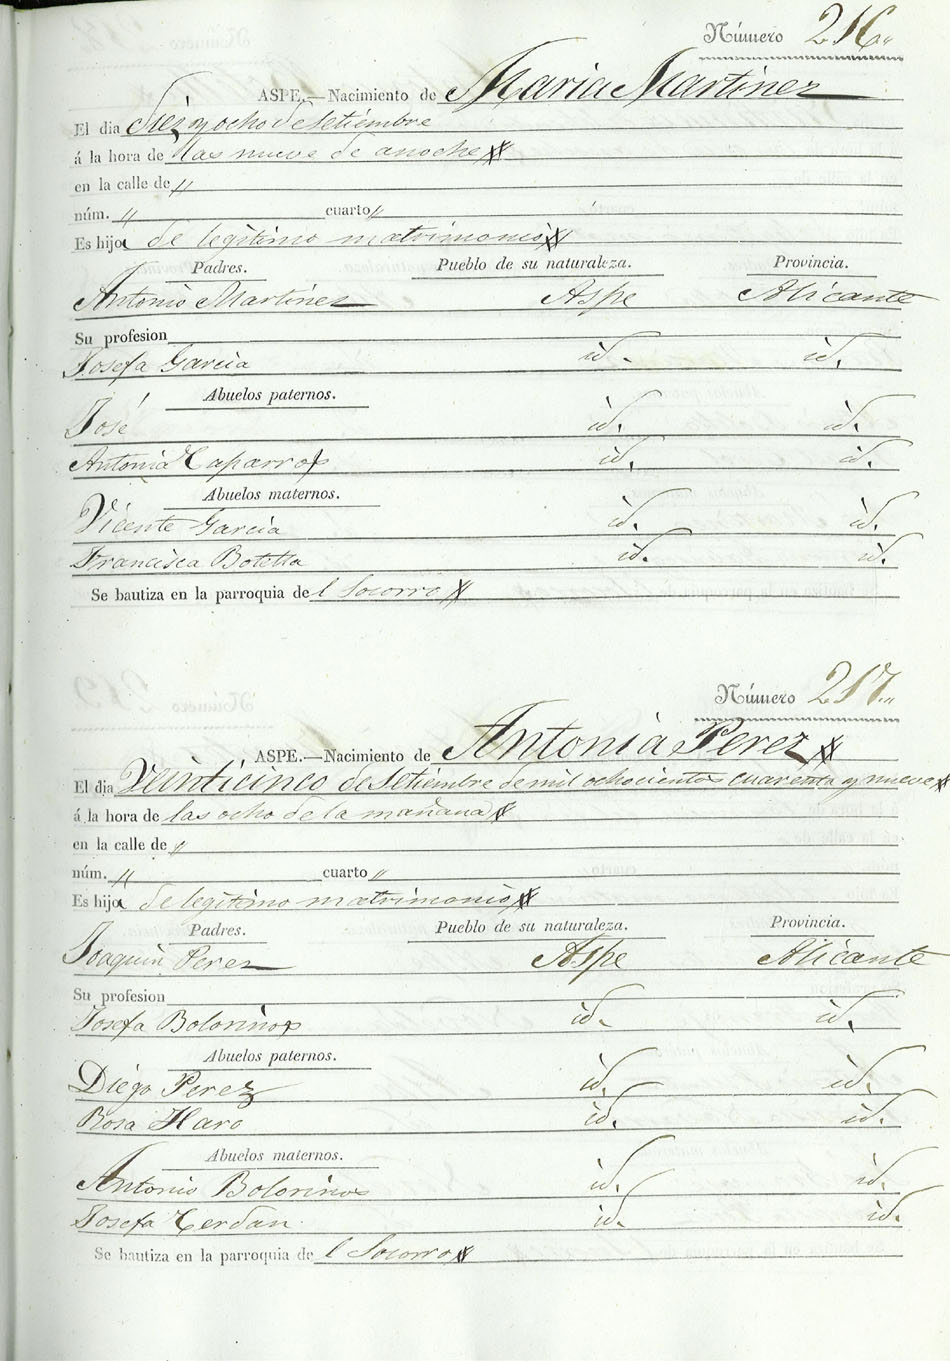 Número 216
ASPE.—Nacimiento de Maria Martinez
El dia Diez y ocho de Setiembre
á la hora de las nueve de anoche
en la calle de "
núm. " cuarto "
Es hija de legitimo matrimonio
Padres. Pueblo de su naturaleza. Provincia.
Antonio Martinez Aspe Alicante
Su profesion
Josefa Garcia id. id.
Abuelos paternos.
José id. id.
Antonia Caparros id. id.
Abuelos maternos.
Vicente Garcia id. id.
Francisca Botella id. id.
Se bautiza en la parroquia del Socorro
Número 217
ASPE.—Nacimiento de Antonia Perez
El dia Veinticinco de Setiembre de mil ochocientos cuarenta y nueve
á la hora de las ocho de la mañana
en la calle de "
núm. " cuarto "
Es hija de legitimo matrimonio
Padres. Pueblo de su naturaleza. Provincia.
Joaquin Perez Aspe Alicante
Su profesion
Josefa Bolorinos id. id.
Abuelos paternos.
Diego Perez id. id.
Rosa Haro id. id.
Abuelos maternos.
Antonio Bolorinos id. id.
Josefa Cerdan. id. id.
Se bautiza en la parroquia del Socorro